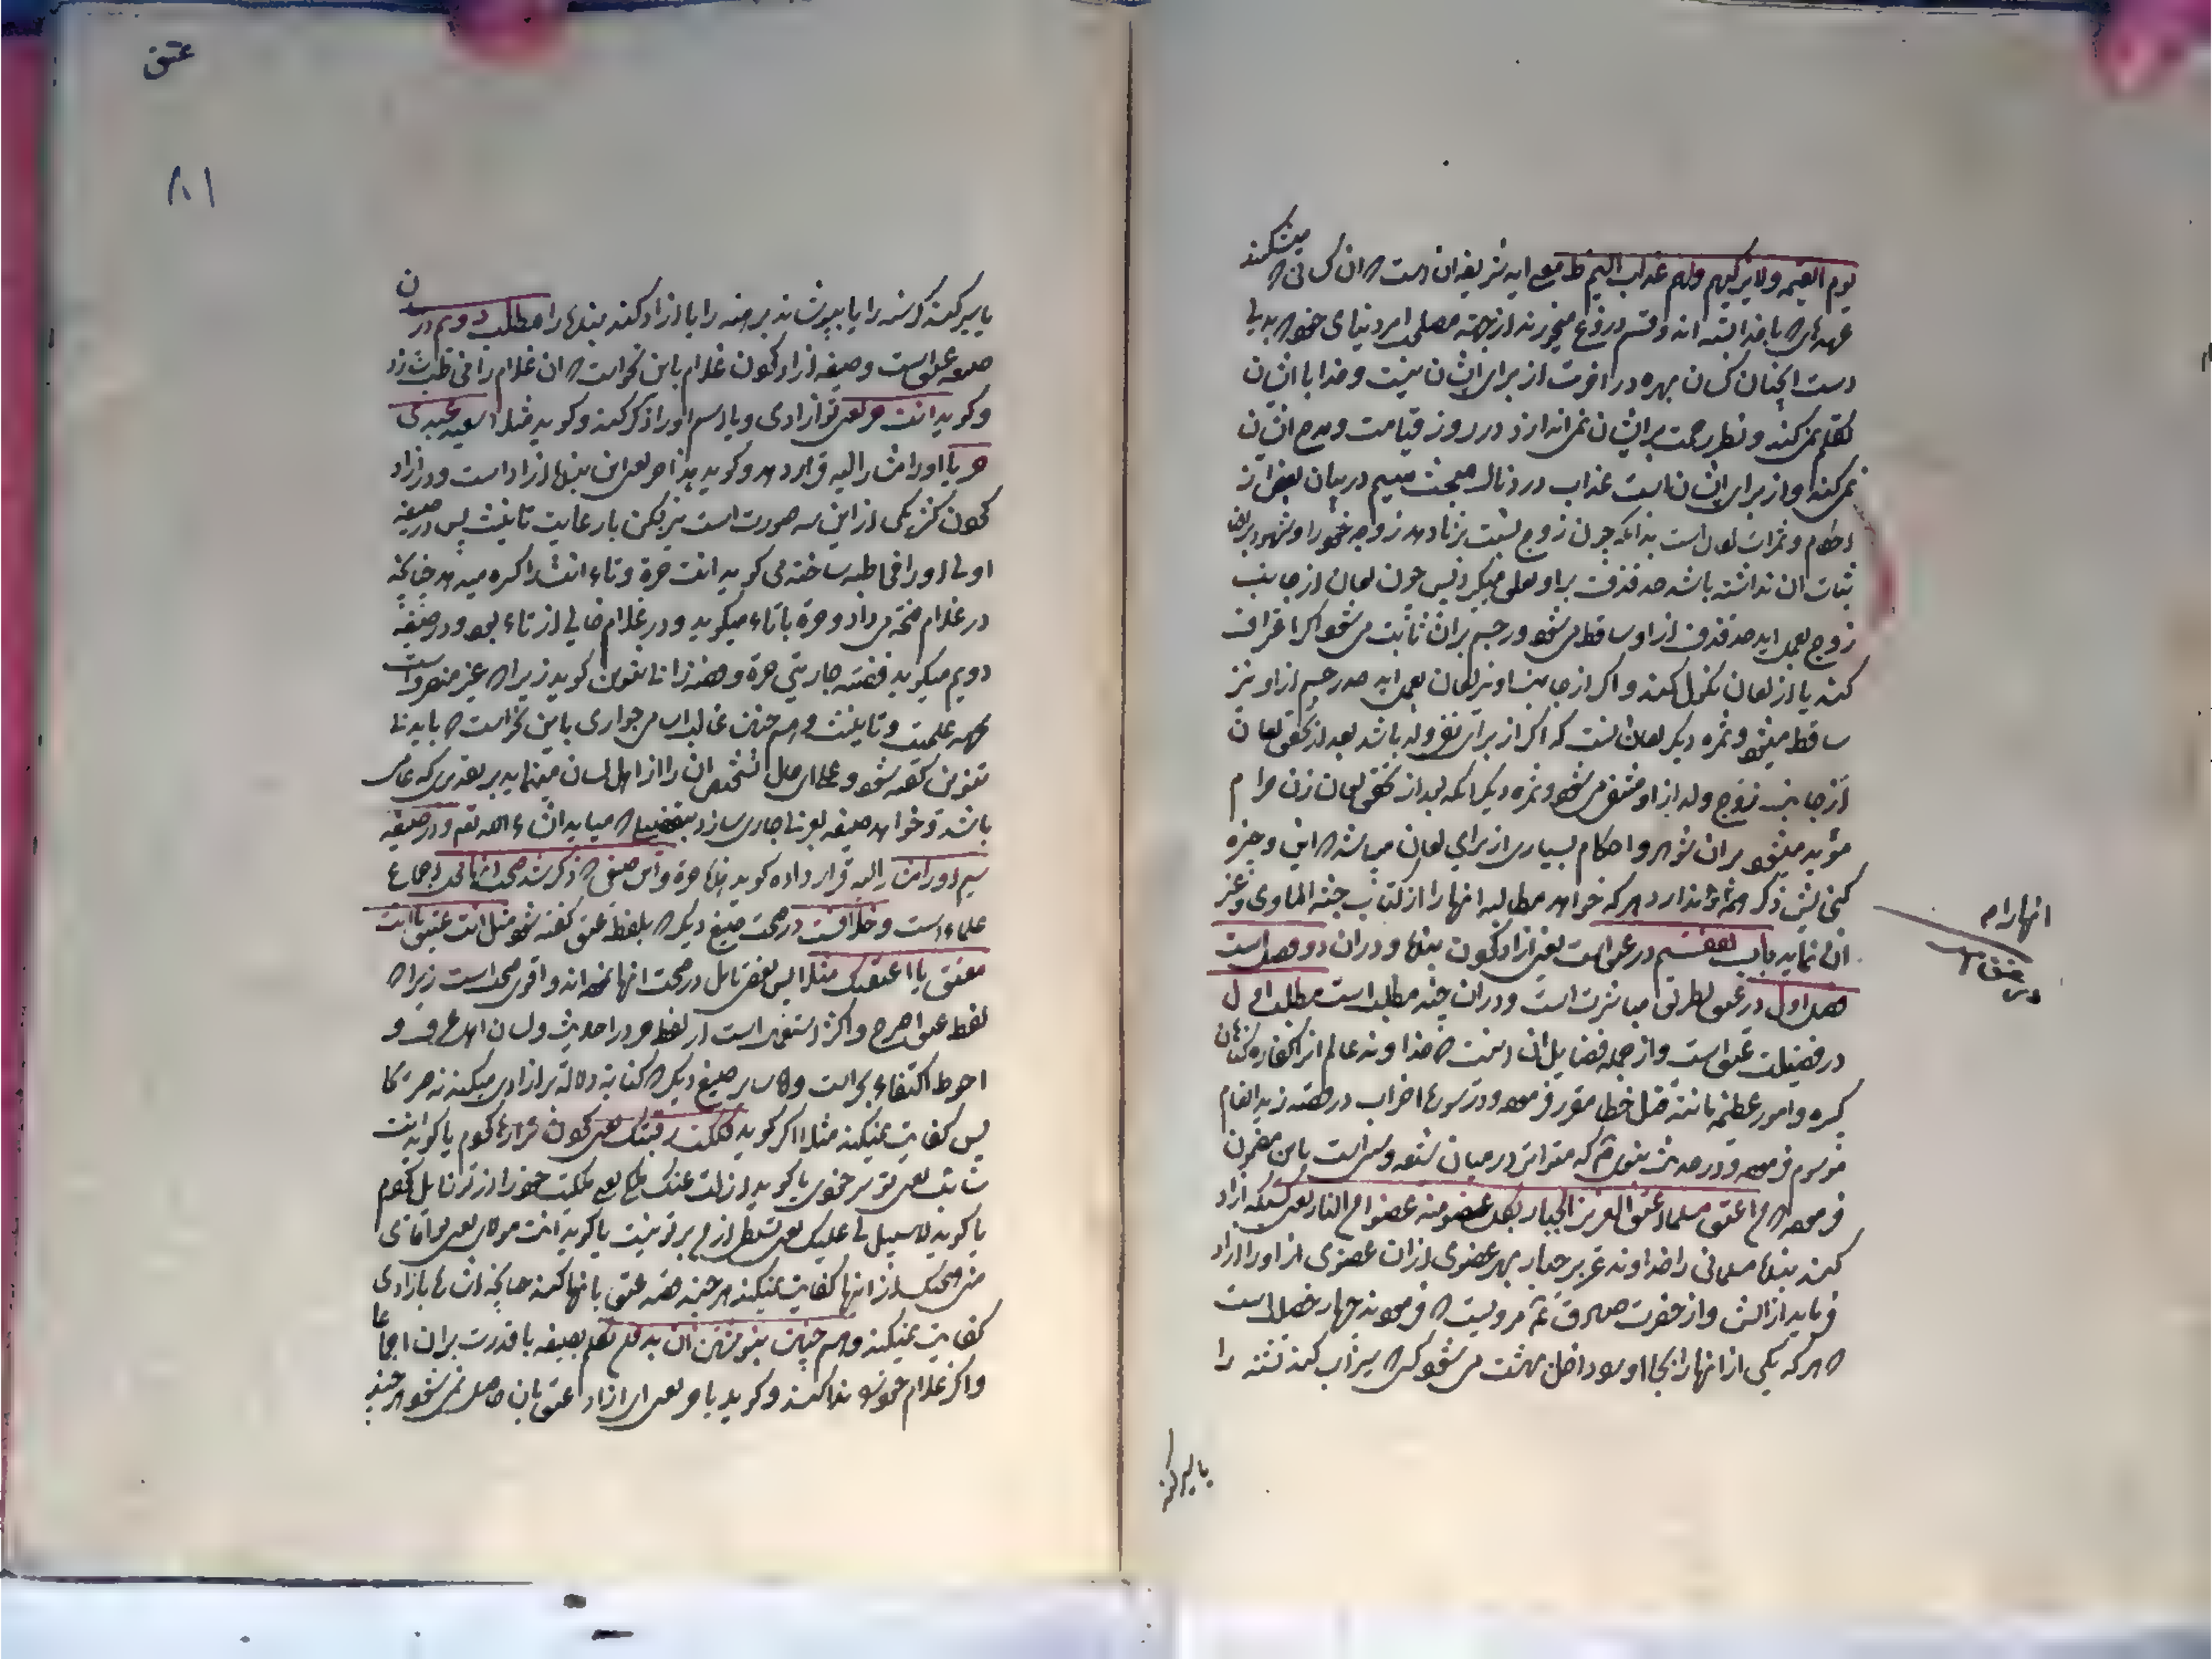 یوم القیمه ولا یزکیهم ولهم عذاب الیم ط معنی ایه شریفه ان است که ان کسانی که میشکنند
عهدهای که با خدا بسته اند و قسم دروغ میخورند از جهته مصلحت امر دنیای خود
دست اینچنان کسان بهره در اخرت از برای ایشان نیست و خدا با ایشان
تکلم نمیکند و نظر رحمت بر ایشان نمی اندازد در روز قیامت و مدح ایشان
نمیکند و از برای ایشان است عذاب دردناک مبحث سیم در بیان بعض از
احکام و ثمرات لعان است بدانکه چون زوج نسبت بزنا دهد زوجه خود را و شهود بر
ثبات ان نداشته باشد حد قذف بر او تعلق میگیرد پس چون لعان از جانب
زوج بعمل اید حد قذف از او ساقط میشود و رجم بر ان ثابت میشود اگر اعتراف
کند یا از لعان نکول کند و اگر از جانب او نیز لعان بعمل اید حد رجم از او نیز
ساقط میشود و ثمره دیگر لعان انست که اگر از برای نفی ولد باشد بعد از تحقق لعان
از جانب زوج ولد از او منتفی میشود و ثمره دیگر انکه بعد از تحقق لعان زن حرام
مؤبد میشود بر ان شوهر و احکام بسیاری از برای لعان میباشد که این وجیزه
گنجایش ذکر انها را ندارد هر که خواهد مطالبه انها را از کتاب جنة الماوی و غیر
ان نماید باب هفتم در عتق است یعنی ازاد کردن بنده و در ان دو فصل است
فصل اول در عتق بطریق مباشرت است و در ان چند مطلب است مطلب اول
در فضیلت عتق است و از جمله فضایل ان اینست که خداوند عالم انرا کفاره گناهان
کبیره و امور عظیمه مانند قتل خطا مقرر فرموده و در سوره احزاب در قصه زید انعام
موسوم فرموده و در حدیث نبوی که متواتر در میان شیعه و سنی است باین مضمون
فرموده که من اعتق مسلما اعتق العزیز الجبار بکل عضو منه عضوا من النار یعنی کسیکه ازاد
کند بنده مسلمانی را خداوند عزیز جبار بهر عضوی از ان عضوی از او را ازاد
فرماید از اتش و از حضرت صادق ع مرویست که فرمودند چهار خصلت است
که هر که یکی از انها را بجا اورد داخل بهشت میشود کسی که سیراب کند تشنه را
یا سیر کند
انها را م
در عتق است
عتق
۱۸۱
یا سیر کند گرسنه را یا بپوشاند برهنه را یا ازاد کند بنده را مطلب دویم در
صیغه عتق است و صیغه ازاد کردن غلام باین نحو است که ان غلام را مخاطب سازد
و گوید انت حر یعنی تو ازادی و یا اسم او را ذکر کند و گوید مثلا سعید عبدی
حر یا او را مشار الیه قرار دهد و گوید هذا حر یعنی این بنده ازاد است و در ازاد
کردن کنیز یکی از این سه صورت است نیز لیکن با رعایت تانیث پس در صیغه
اولی او را مخاطبه ساخته می گوید انت حرة و تاء انت را کسره میدهد چنانچه
در غلام فتحه میداد و حرة با تاء میگوید و در غلام خالی از تاء بود و در صیغه
دویم میگوید فضة جاریتی حرة و فضه را با تنوین گوید زیرا که غیر منصرف است
بجهة علمیت و تانیث و همچنین غالب اسامی جواری باین نحو است که باید با
تنوین گفته شود و علی ای حال تشخیص ان را از اهل لسان مینماید بر تقدیری که عامی
باشد و خواهد صیغه بعربی جاری سازد بتفصیلی که میاید انشاء الله تعالی و در صیغه
سیم او را مشار الیه قرار داده گوید هذه حرة و این صیغی که ذکر شد صحت انها محل اجماع
علماء است و خلافست در صحت صیغ دیگر که بلفظ عتق گفته شود مثل انت عتیق یا انت
معتق یا اعتقتک مثلا پس بعضی تامل در صحت انها نموده اند و اقوی صحت است زیرا که
لفظ عتق اصرح و اکثر استعمال است از لفظ حر در احادیث و لسان اهل عرف و
احوط اکتفاء بحر است و اما سایر صیغ دیگر که کنایة دلالة بر ازادی میکند نه صریحا
پس کفایت نمیکند مثلا اگر گوید فککت رقبتک یعنی گردن ترا رها کردم یا گوید انت
سائبة یعنی تو سر خودی یا گوید ازلت عنک ملکی یعنی ملکیت خود را از تو زایل کردم
یا گوید لا سبیل لی علیک یعنی تسلطی از من بر تو نیست یا گوید انت مولای یعنی تو اقای
من هیچیک از انها کفایت نمیکند هر چند قصد عتق بانها کند چنانچه اشاره بازادی
کفایت نمیکند و همچنین نوشتن ان بدون تکلم بصیغه با قدرت بر ان اجماعا
و اگر غلام خود را ندا کند و گوید یا حر یعنی ای ازاد عتق بان حاصل نمیشود هر چند